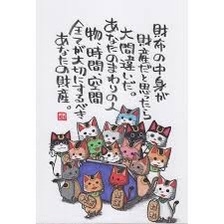 財布の中身が
財産だと思ったら
大間違いだ。
あなたのまわりの人
物、時間、空間
全てが大切にするべき
あなたの財産。